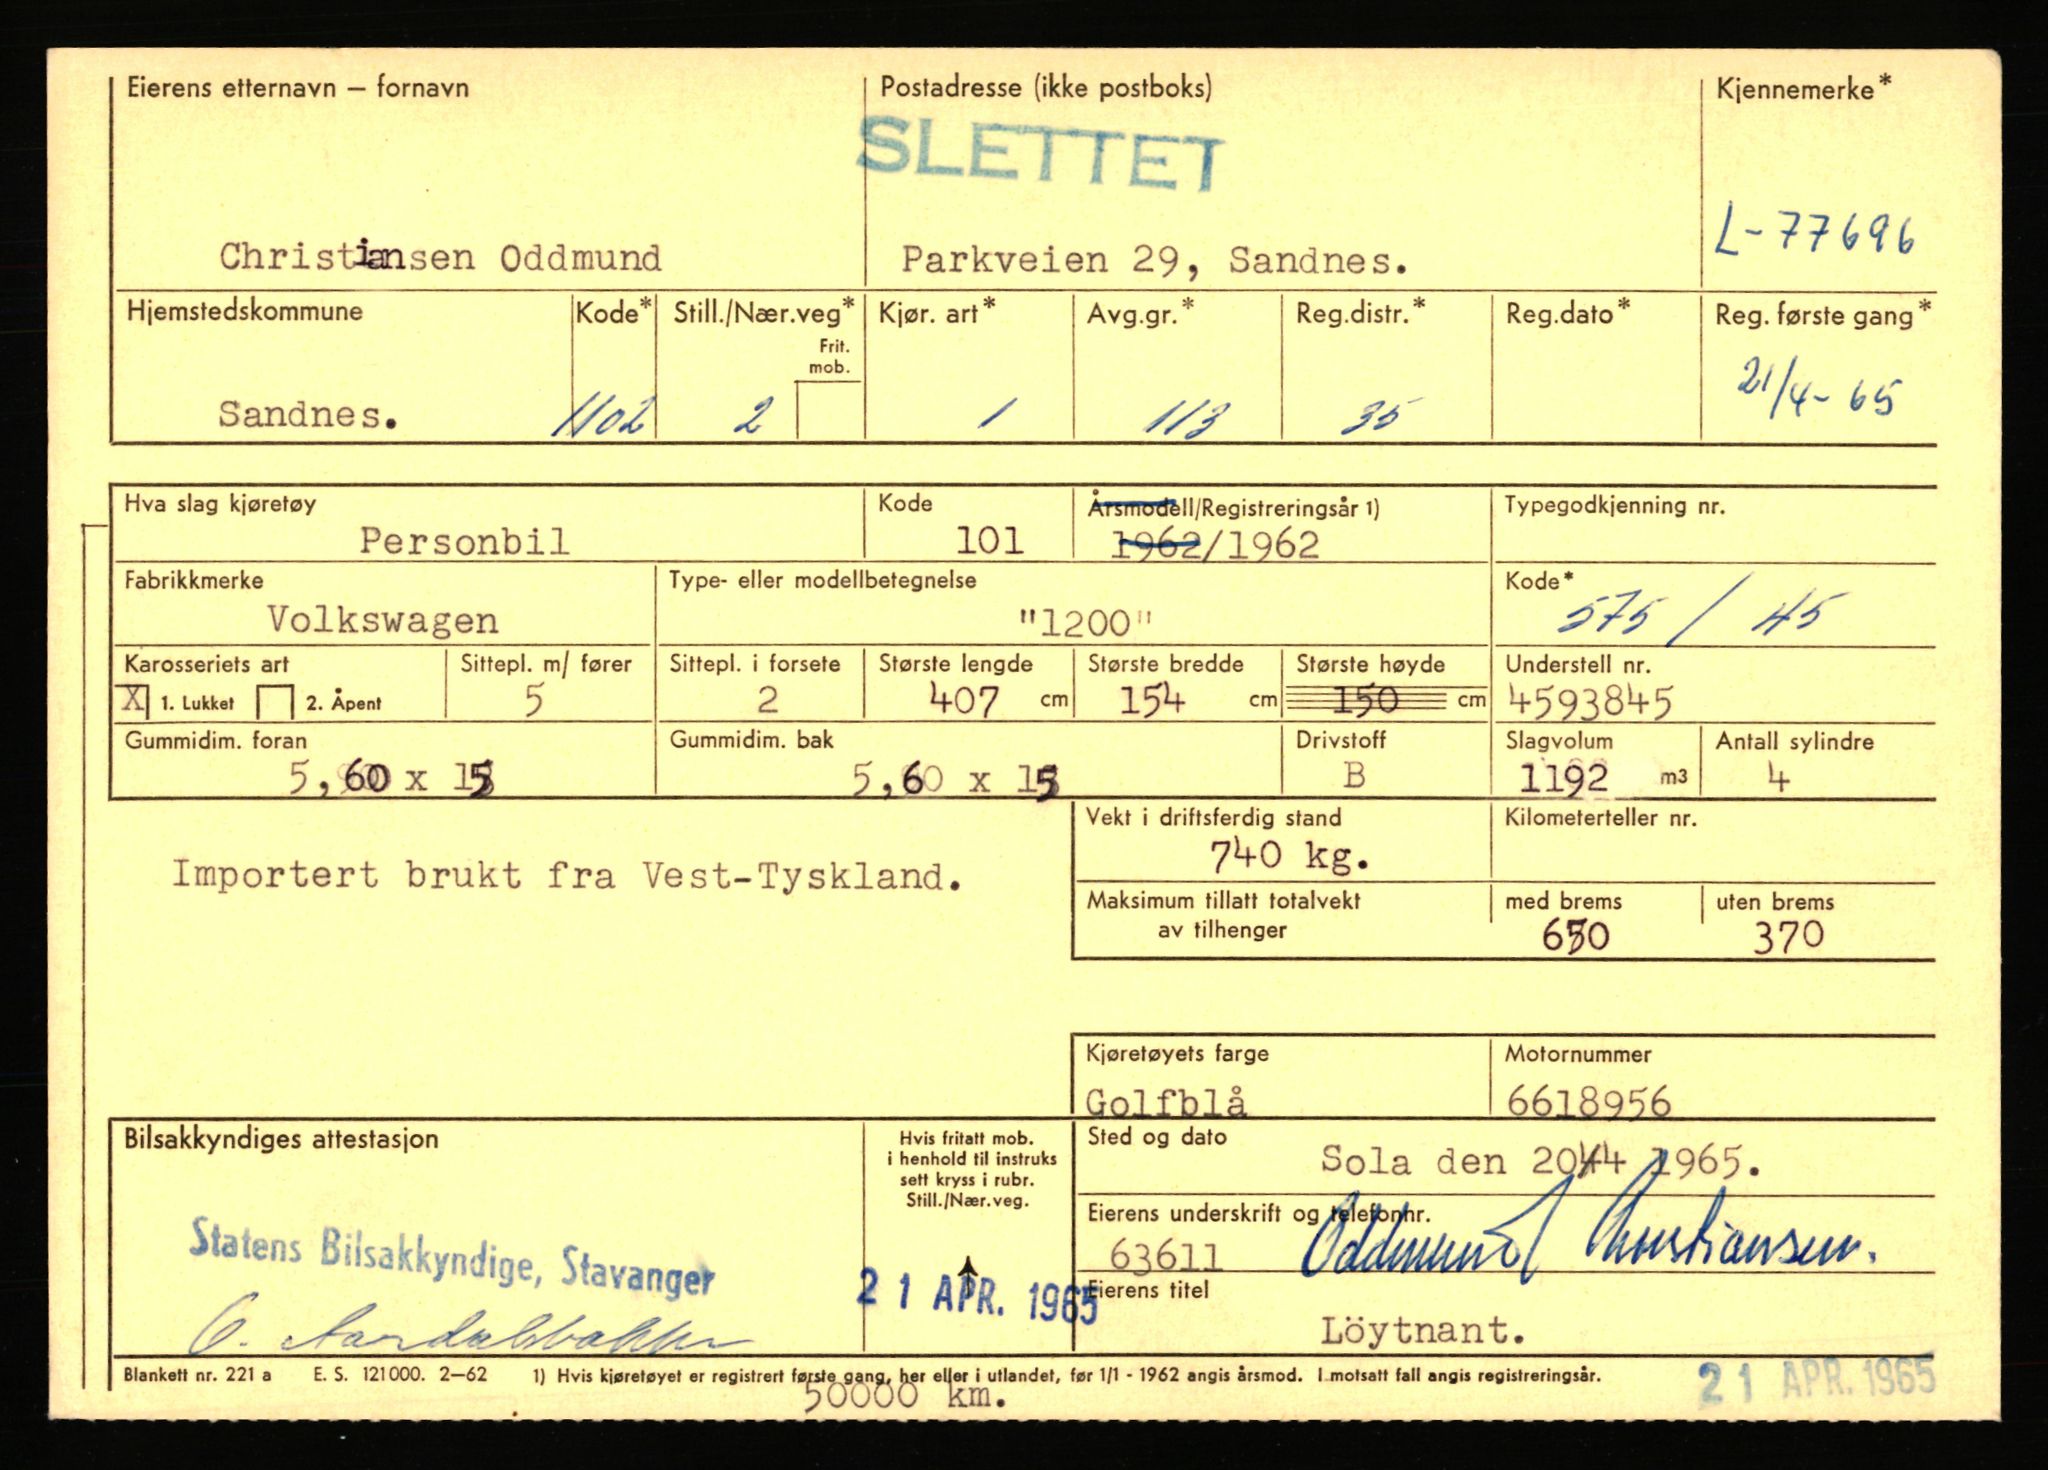 Eierens etternavn – fornavn Postadresse (ikke postboks) Kjennemerke*
SLETTET
Christiansen Oddmund Parkveien 29, Sandnes. L-77696
Hjemstedskommune Kode* Still./Nær.veg* Kjør. art* Avg.gr.* Reg.distr.* Reg.dato* Reg. første gang*
Frit.
mob.
Sandnes. 1102 2 1 113 35 21/4-65
Hva slag kjøretøy Kode Årsmodell/Registreringsår 1) Typegodkjenning nr.
Personbil 101 1962/1962
Fabrikkmerke Type- eller modellbetegnelse Kode*
Volkswagen "1200" 575 / 45
Karosseriets art Sittepl. m/ fører Sittepl. i forsete Største lengde Største bredde Største høyde Understell nr.
X 1. Lukket 2. Åpent 5 2 407 cm 154 cm 150 cm 4593845
Gummidim. foran Gummidim. bak Drivstoff Slagvolum Antall sylindre
5,60 x 15 5,60 x 15 B 1192 m3 4
Vekt i driftsferdig stand Kilometerteller nr.
740 kg.
Importert brukt fra Vest-Tyskland.
Maksimum tillatt totalvekt med brems uten brems
av tilhenger 650 370
Kjøretøyets farge Motornummer
Golfblå 6618956
Bilsakkyndiges attestasjon Hvis fritatt mob. Sted og dato
i henhold til instruks
sett kryss i rubr.
Still./Nær.veg.
Sola den 20/4 1965.
Eierens underskrift og telefonnr.
63611 Oddmund Christiansen.
Statens Bilsakkyndige, Stavanger 21 APR. 1965
Eierens titel
Löytnant.
Blankett nr. 221 a E. S. 121000. 2–62 1) Hvis kjøretøyet er registrert første gang, her eller i utlandet, før 1/1 - 1962 angis årsmod. I motsatt fall angis registreringsår.
21 APR. 1965
50000 km.